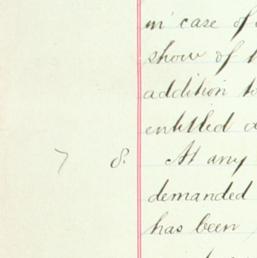 in case of
show of
addition to
entitled
7 8. At any
demanded
has been